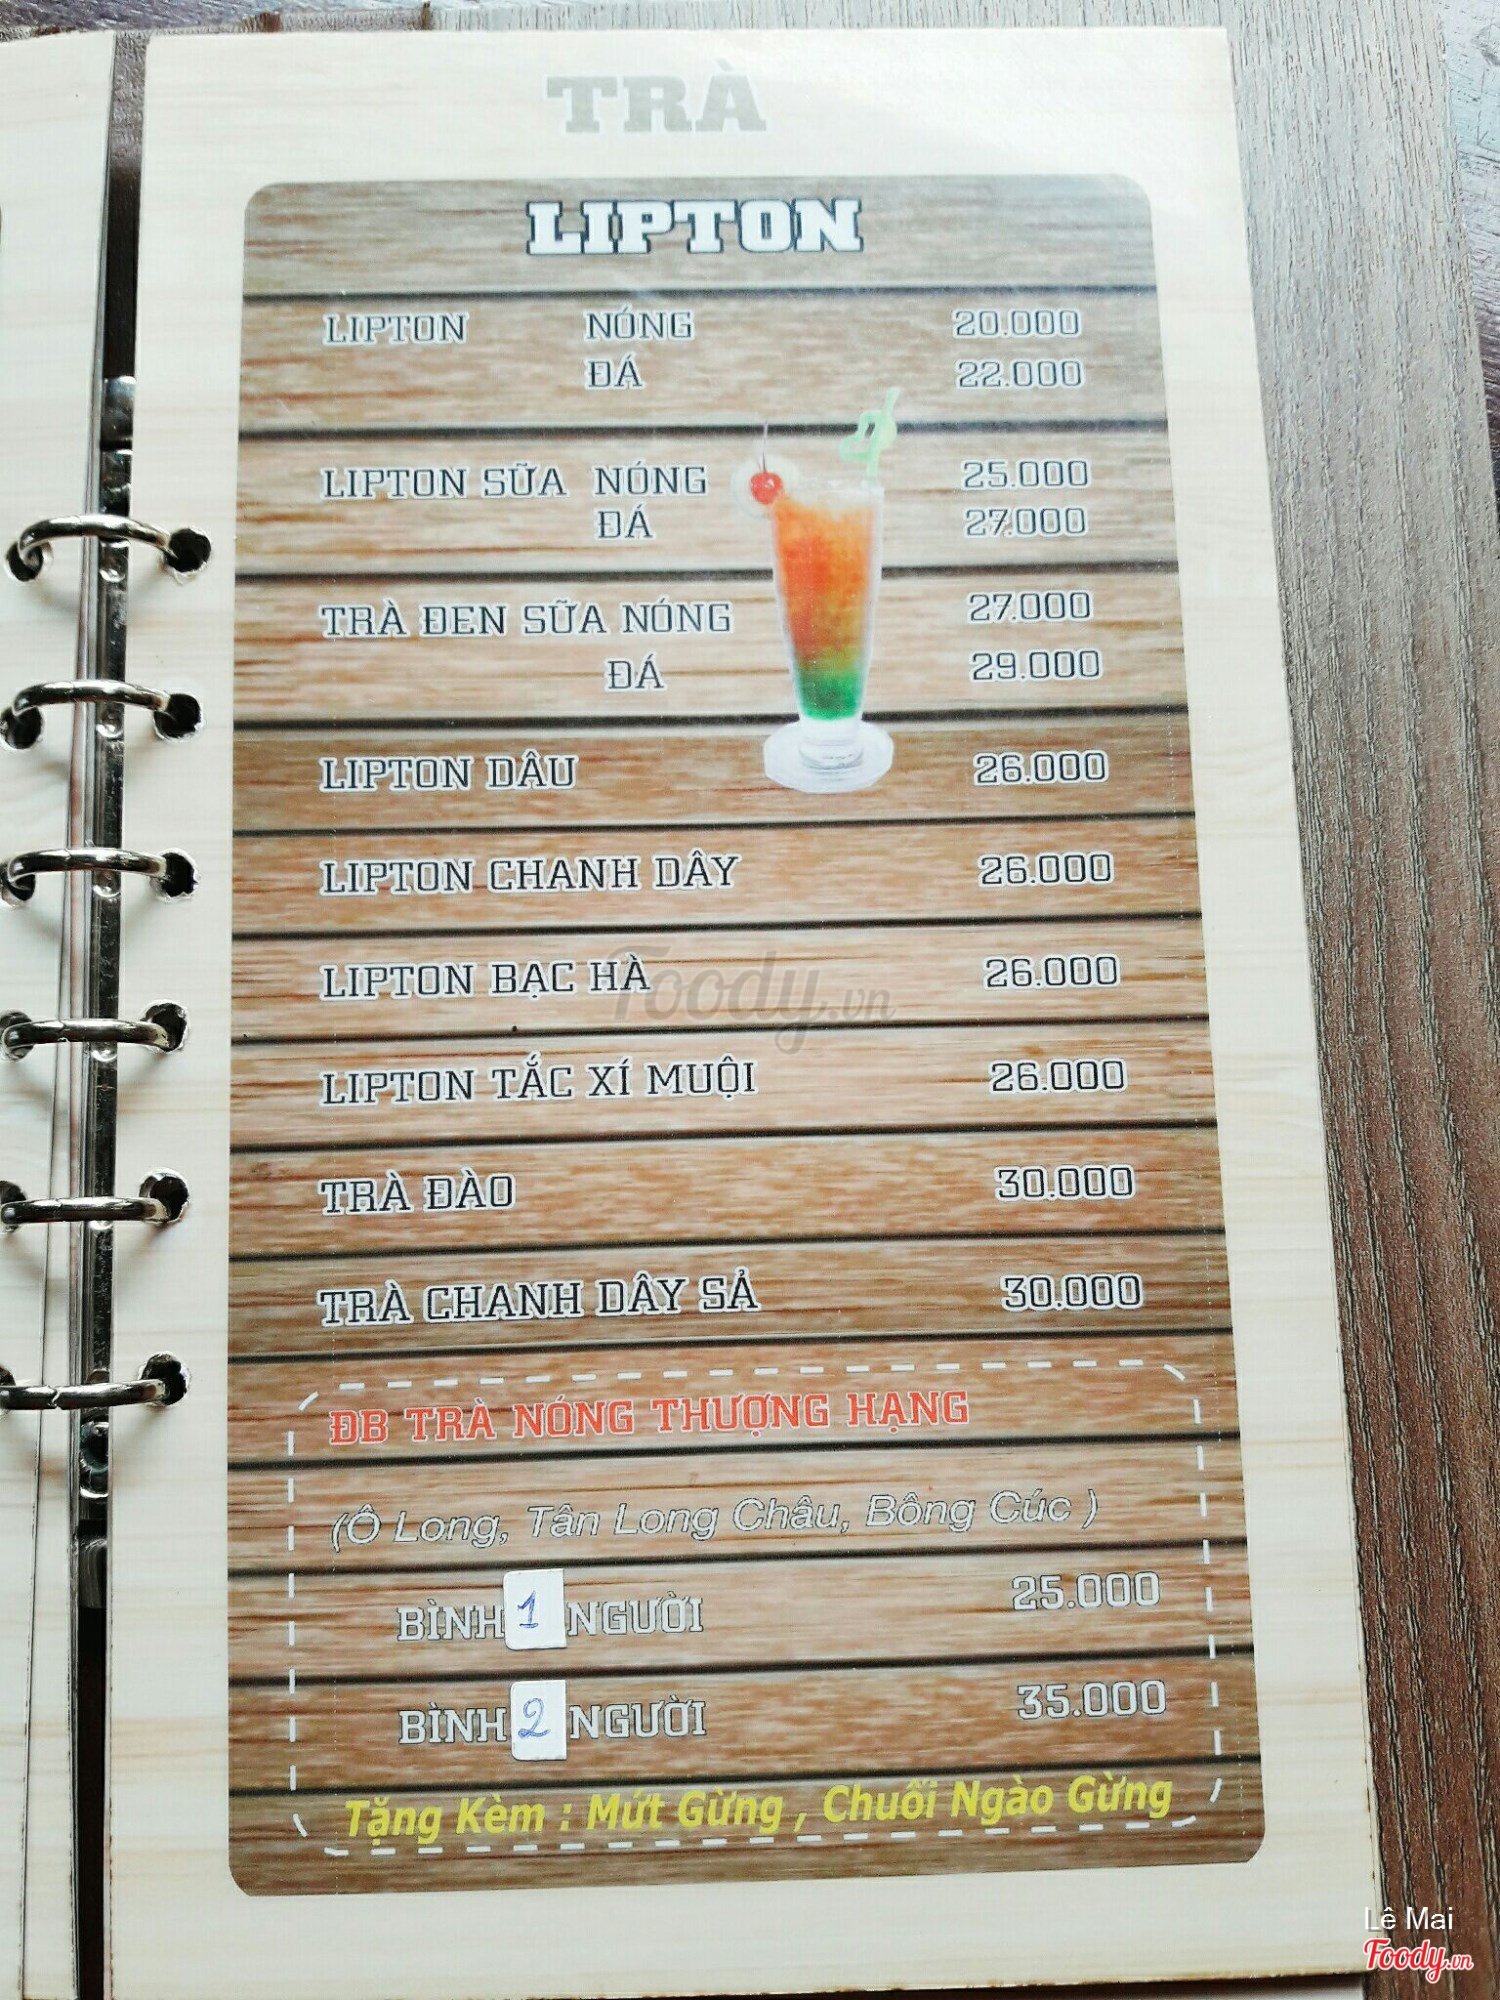 TRÀ
LIPTON
LIPTON NÓNG 20.000
ĐÁ 22.000
LIPTON SỮA NÓNG 25.000
ĐÁ 27.000
TRÀ ĐEN SỮA NÓNG 27.000
ĐÁ 29.000
LIPTON DÂU 26.000
LIPTON CHANH DÂY 26.000
LIPTON BẠC HÀ 26.000
Foody.vn
LIPTON TẮC XÍ MUỘI 26.000
TRÀ ĐÀO 30.000
TRÀ CHANH DÂY SẢ 30.000
ĐB TRÀ NÓNG THƯỢNG HẠNG
(Ô Long, Tân Long Châu, Bông Cúc )
BÌNH 1 NGƯỜI 25.000
BÌNH 2 NGƯỜI 35.000
Tặng Kèm : Mứt Gừng , Chuối Ngào Gừng
Lê Mai
Foody.vn